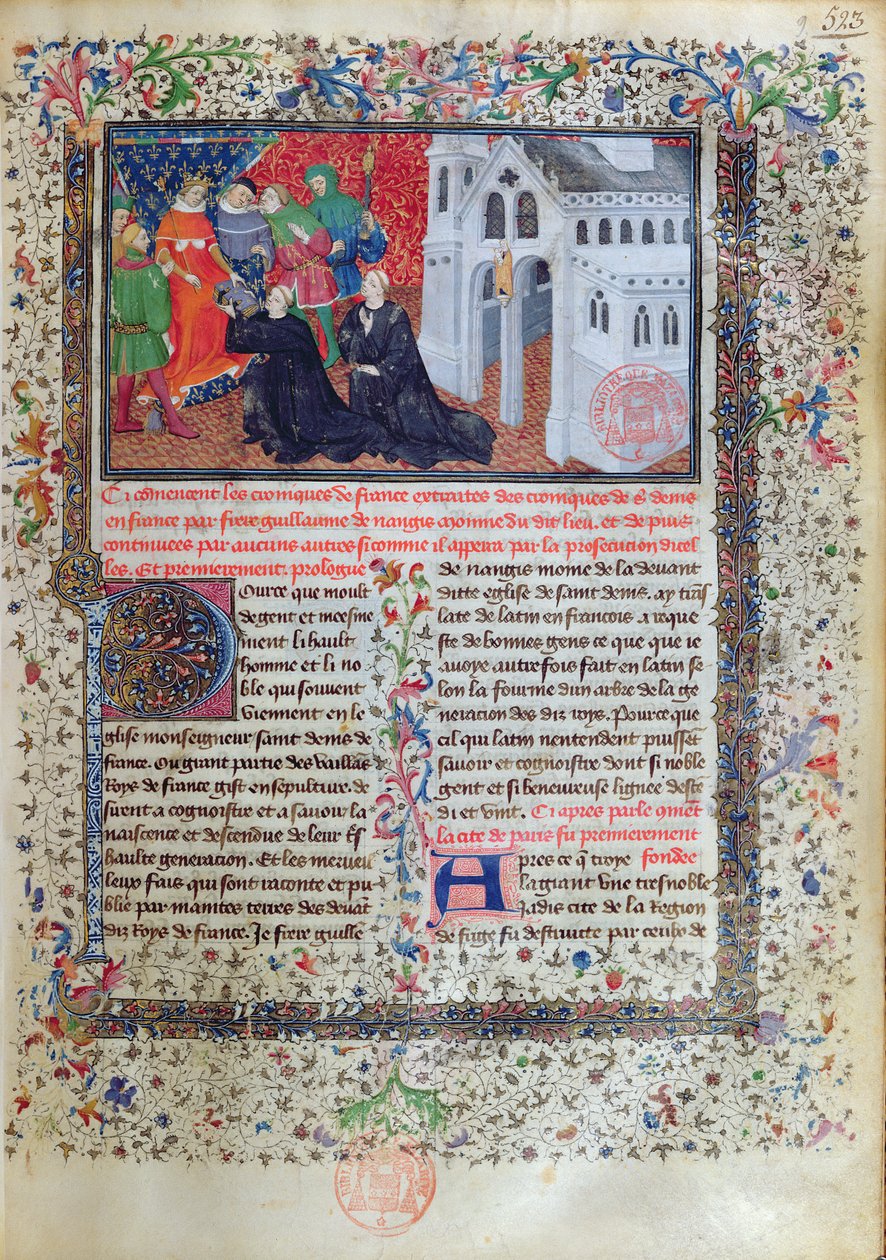 523
Ci cõmencent les croniques de france extraites des croniques de s̃ denis
en france par frere guillaume de nangis moinne du dit lieu. et de puis
continuees par aucuns autres si comme il apperra par la prosecucion dicel
les. Et premierement. prologue
Pource que moult
de gent et mesme
ment li hault
homme et li no
ble qui souvent
viennent en le
glise monseigneur saint denis de
france. Ou grant partie des vaillãs
Roys de france gist en sepulture. de
sirent a cognoistre et a savoir la
naiscence et descendue de leur
haulte generacion. Et les merveil
leux fais qui sont raconte et pu
blie par maintes terres des devãt
diz Roys de france. Je frere guille
de nangis moine de la devant
ditte eglise de saint denis. ay trãs
late de latin en francois a reque
ste de bonnes gens ce que que ie
avoye autre fois fait en latin se
lon la fourme dun arbre de la ge
neracion des diz roys. Pource que
cil qui latin nentendent puissẽt
savoir et cognoistre dont si noble
gent et si beneureuse lignee deste
di et vint. Ci apres parle cõmẽt
la cite de paris fu premierement
fondee
Apres ce q̃ troye
la grant une tresnoble
Jadis cite de la Region
de frige fu destruicte par ceulx de
BIBLIOTHEQUE
BIBLIOTHEQUE